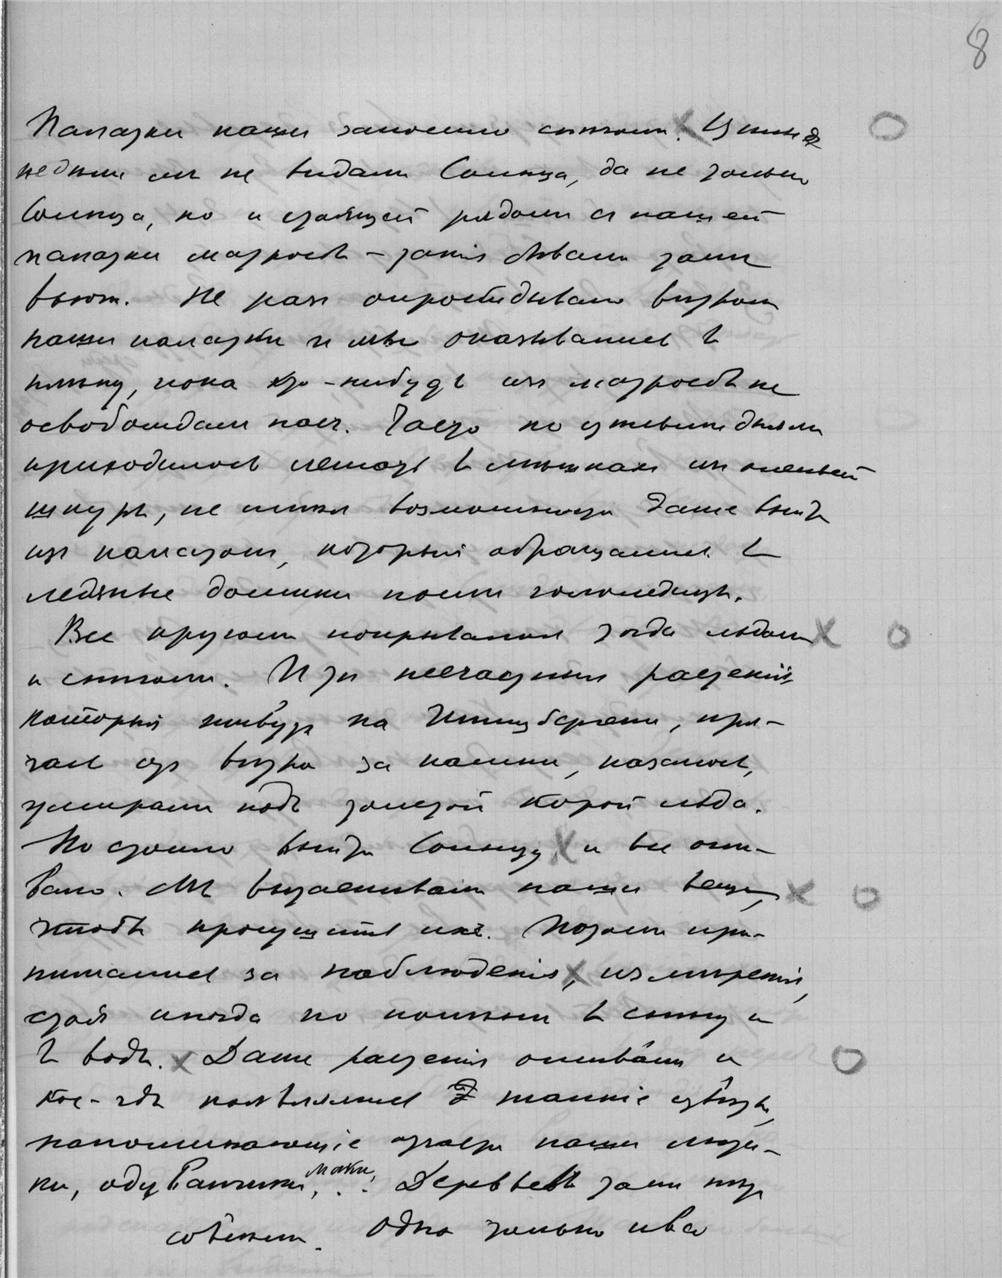 8
Палатки наши заносило снегом. Целыя
недели мы не видали Солнца, да не только
Солнца, но и стоящей рядом с нашей
палатки матросов – такие бывали там
вьюги. Не раз опрокидывало ветром
наши палатки и мы оказывались в
плену, пока кто-нибудь из матросовъ не
освобождал насъ. Часто по целым дням
приходилось лежать в мешках из оленьей
шкуры, не имея возможности даже выйти
из палаток, которыя обращались в
ледяные домики после гололедицы.
Все кругом покрывалось тогда льдом
и снегом. И эти несчастныя растенія,
которыя живут на Шпицбергене, пря-
чась от ветра за камни, казалось,
умирали подъ толстой корой льда.
Но стоило выйти Солнцу, и все ожи-
вало. Мы вытаскивали наши вещи,
чтобъ просушить ихъ. Потом при-
нимались за наблюденія, измеренія,
стоя иногда по колени в снегу и
в воде. Даже растенія оживали и
кое-где появлялись жалкіе цветы,
напоминающіе отчасти наши люти-
ки, одуванчики, маки, . . : Деревьевъ там нет
совсем. Одна только ива